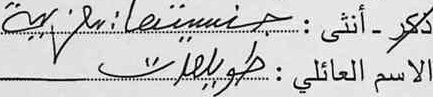 ذكر - أنثى : جنسيتها : مغربية
الاسم العائلي :